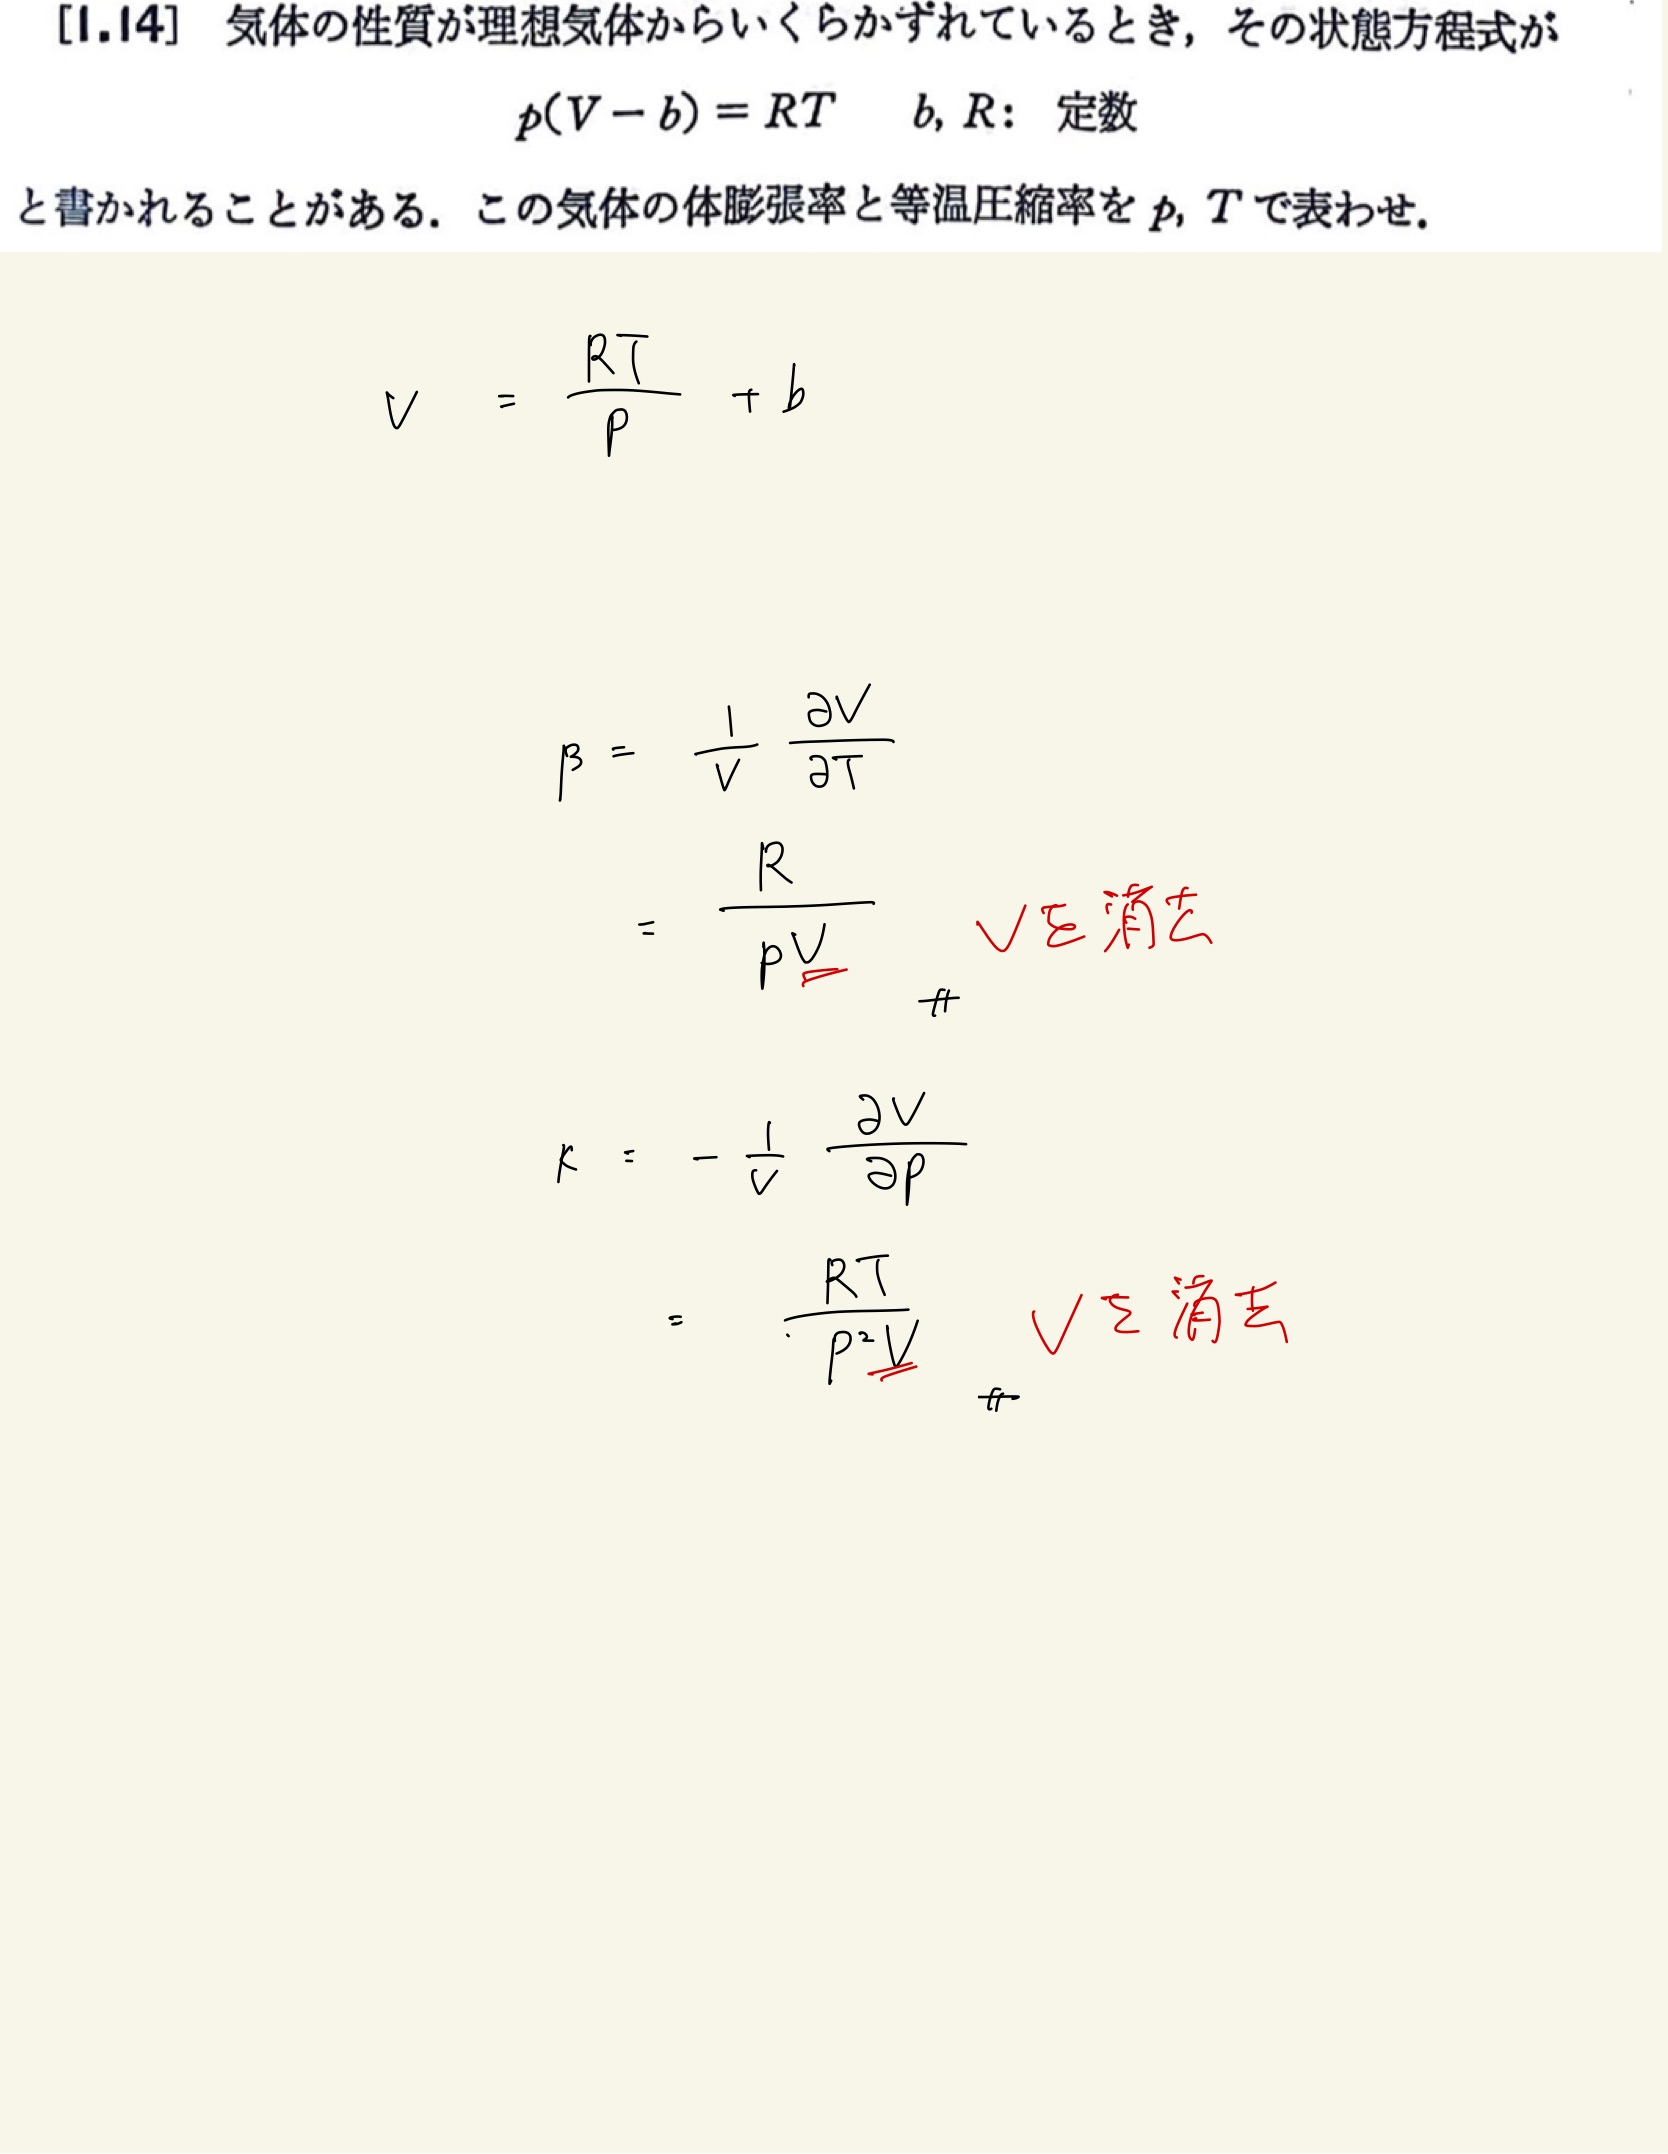 [1.14] 気体の性質が理想気体からいくらかずれているとき，その状態方程式が
p(V − b) = RT　b, R: 定数
と書かれることがある．この気体の体膨張率と等温圧縮率を p, T で表わせ．
V = RT/P + b
β = 1/V ∂V/∂T
= R/pV Vを消去
#
κ = − 1/V ∂V/∂P
= RT/P²V Vを消去
#